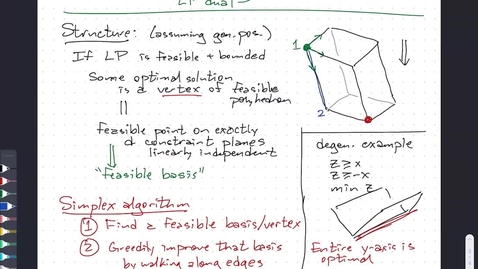 LP dual
Structure: (assuming gen. pos.)
If LP is feasible + bounded
Some optimal solution
is a vertex of feasible
polyhedron
||
feasible point on exactly
d constraint planes
linearly independent
"feasible basis"
Simplex algorithm
① Find a feasible basis/vertex
② Greedily improve that basis
by walking along edges
1
2
degen. example
z ≥ x
z ≥ -x
min z
Entire y-axis is
optimal